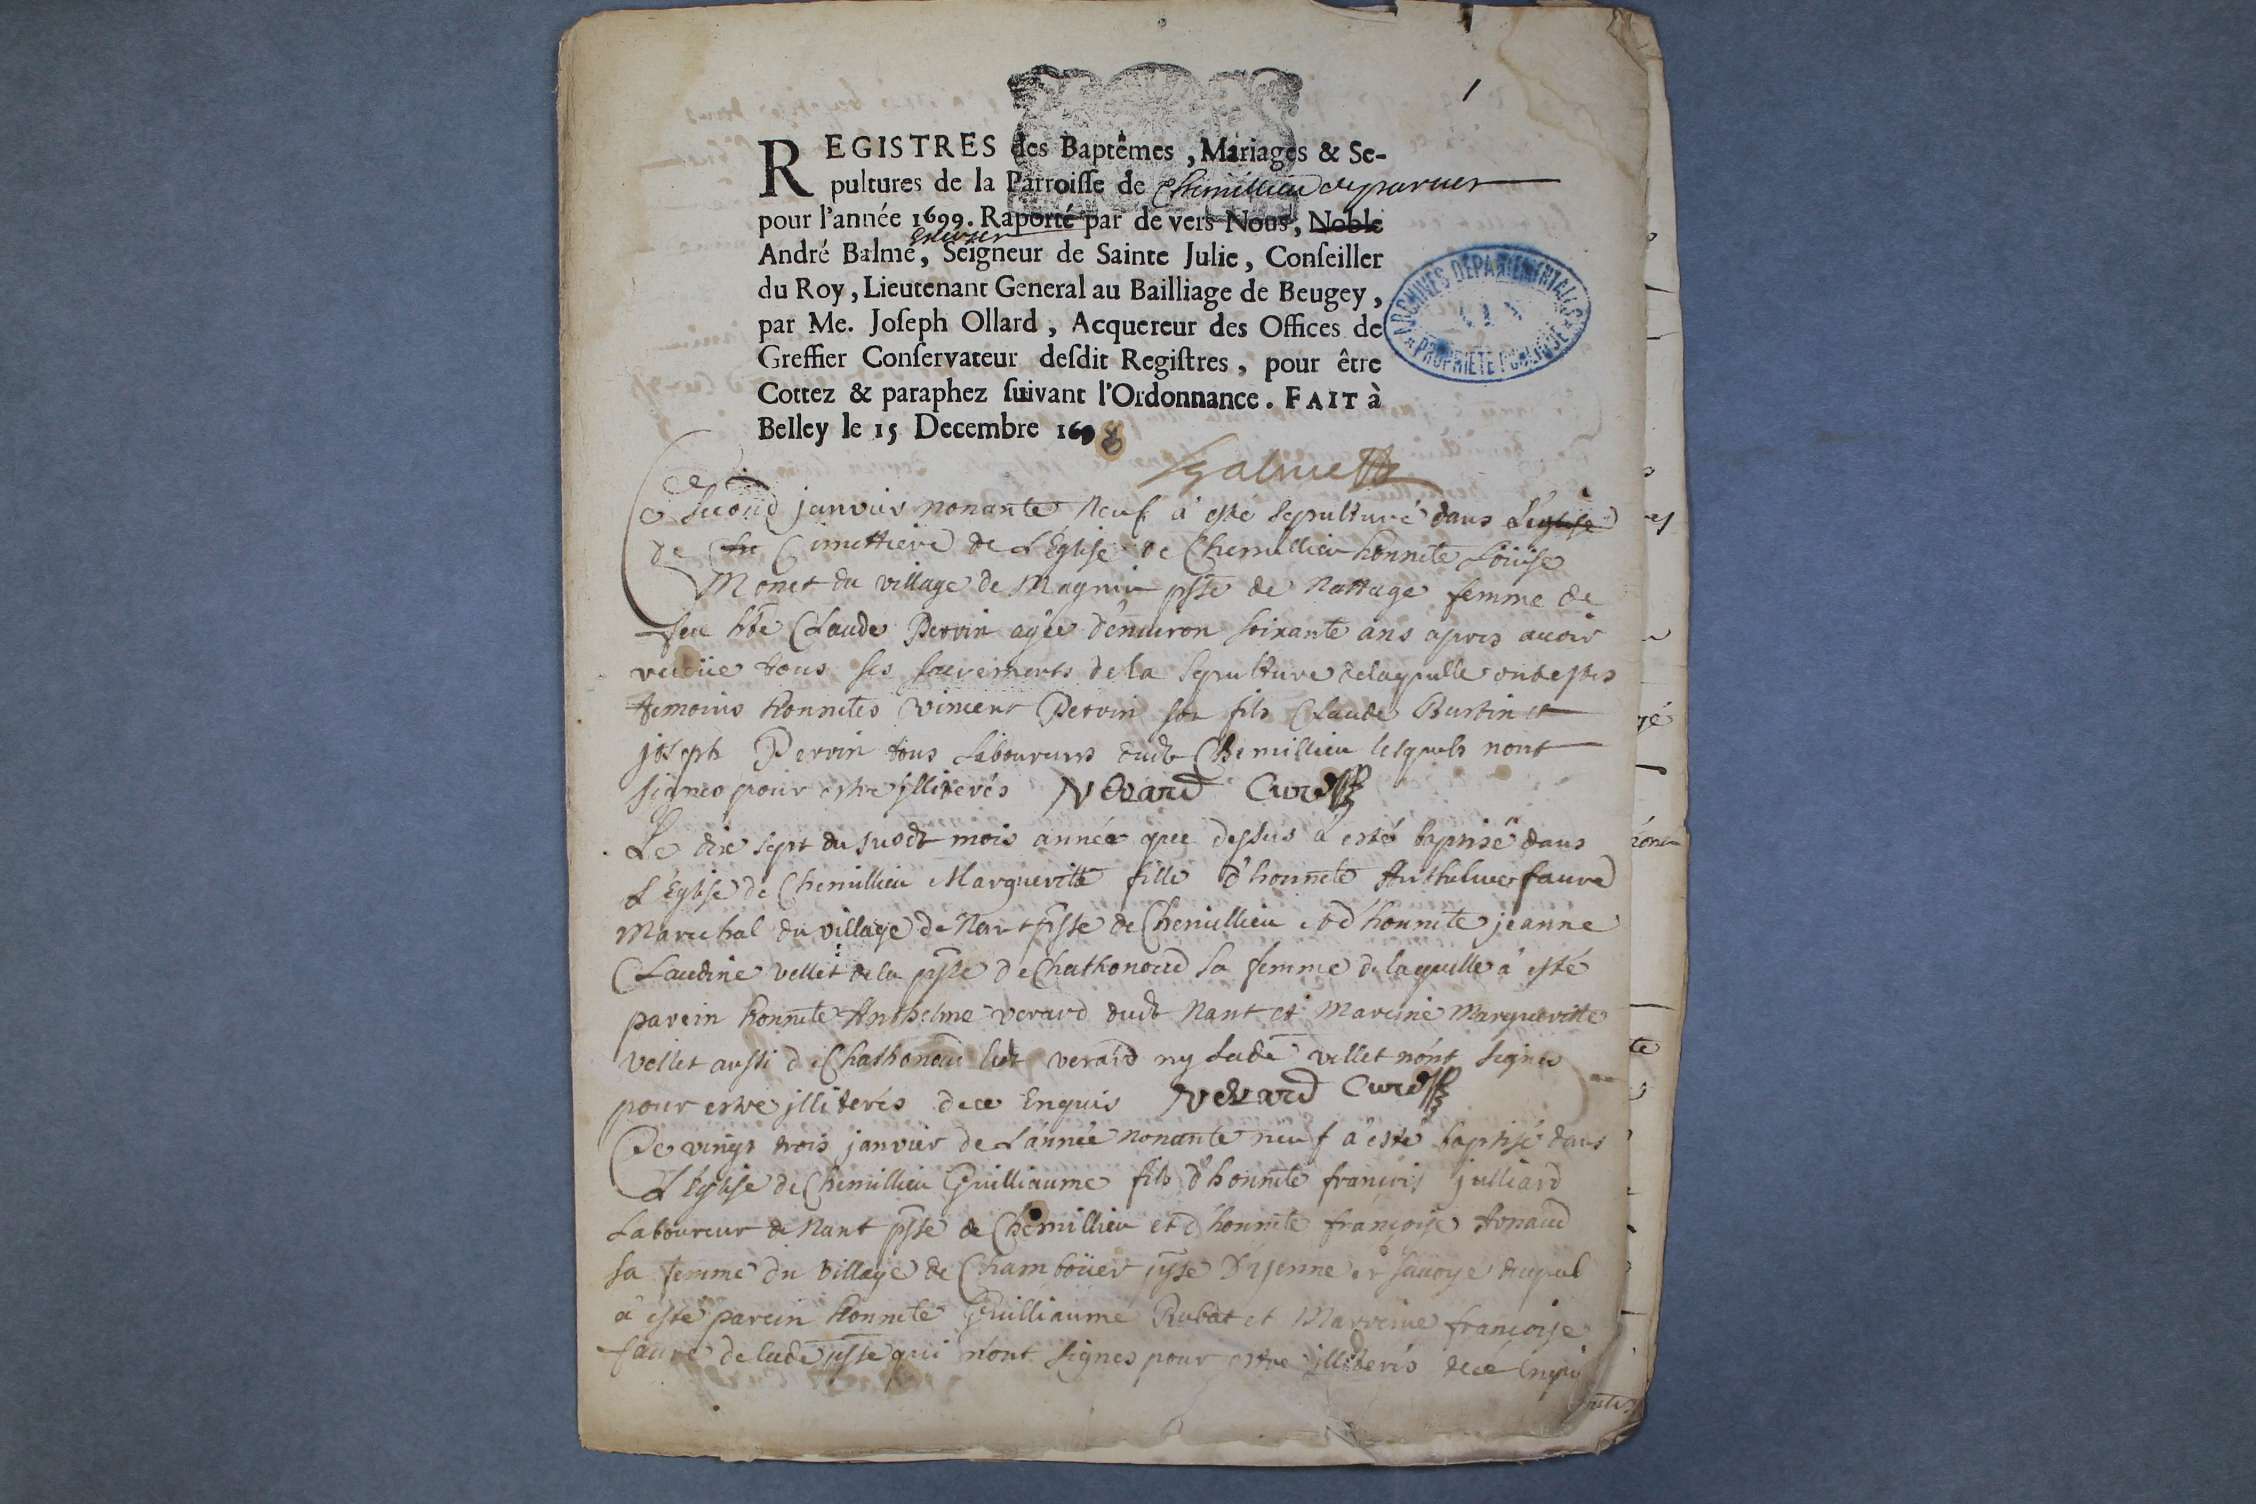 1
REGISTRES des Baptêmes, Mariages & Se-
pultures de la Parroisse de Chemillieu de parves
pour l'année 1699. Raporté par de vers Nous, Noble
Escuyer
André Balme, Seigneur de Sainte Julie, Conseiller
du Roy, Lieutenant General au Bailliage de Beugey,
par Me. Joseph Ollard, Acquereur des Offices de
Greffier Conservateur desdit Registres, pour être
Cottez & paraphez suivant l'Ordonnance. FAIT à
Belley le 15 Decembre 1698
ARCHIVES DEPARTEMENTALES
AIN
PROPRIETE PUBLIQUE
Balme
Ce second janvier nonante neuf a esté sepulturé dans L'église
de Cimettiere de L'Église de Chemillieu honnete Loüise
Monet du village de Magnin psse de Nattage femme de
feu hte Claude Perrin agée d'environ soixante ans apres avoir
receüe tous ses sacrements de la sepulture de laquelle ont estes
temoins honnetes Vincent Perrin son fils Claude Burtin et
joseph Perrin tous Laboureurs dudt Chemillieu lesquels nont
signes pour estre jlliterés Nevard Curé
Le dix sept du susdt mois année que dessus a esté baptisé dans
L'Eglise de Chemillieu Margueritte fille d'honnete Anthelme faure
Marechal du village de Nant psse de Chemillieu et d'honnete jeanne
Claudine vellet de la psse de Chathonod sa femme de laquelle a esté
parein honnete Anthelme verard dudt Nant et Mareine Margueritte
Vellet aussi de Chathonod ledt verard ny lade vellet nont signes
pour estre jlliterés de ce Enquis Nevard Curé
Ce vingt trois janvier de L'année nonante neuf a esté baptisé dans
L'Eglise de Chemillieu Guilliaume fils d'honnete françois julliard
Laboureur de Nant psse de Chemillieu et d'honnete françoise Arnaud
sa femme du Village de Chamboüer psse D'yenne en Savoye duquel
a esté parein honnete Guilliaume Rubat et Marreine françoise
faure de lade psse qui nont signes pour estre jlliterés de ce Enquis